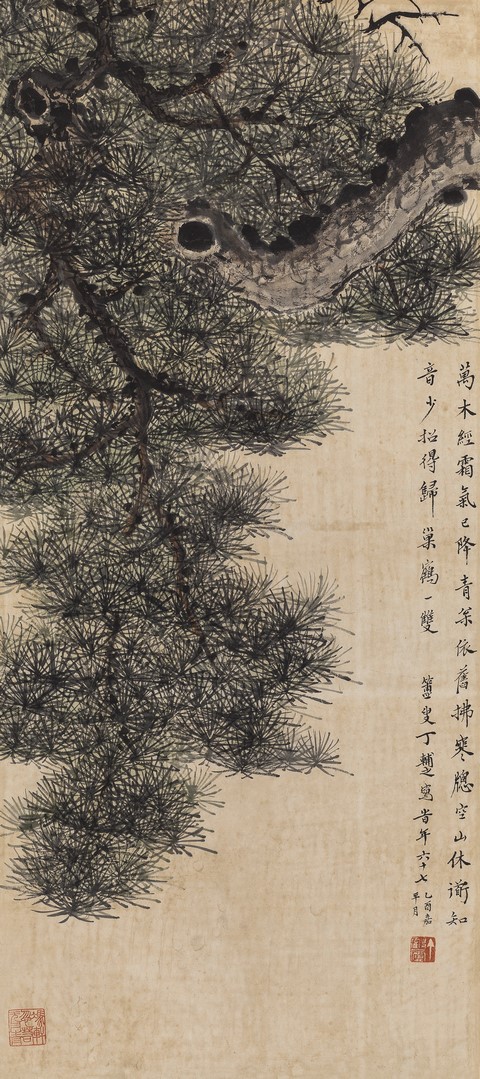 萬木經霜氣已降青柔依舊拂寒牕空山休謝知
音少招得歸巢鶴一雙
叟丁輔之寫昔年六十七
乙酉
月